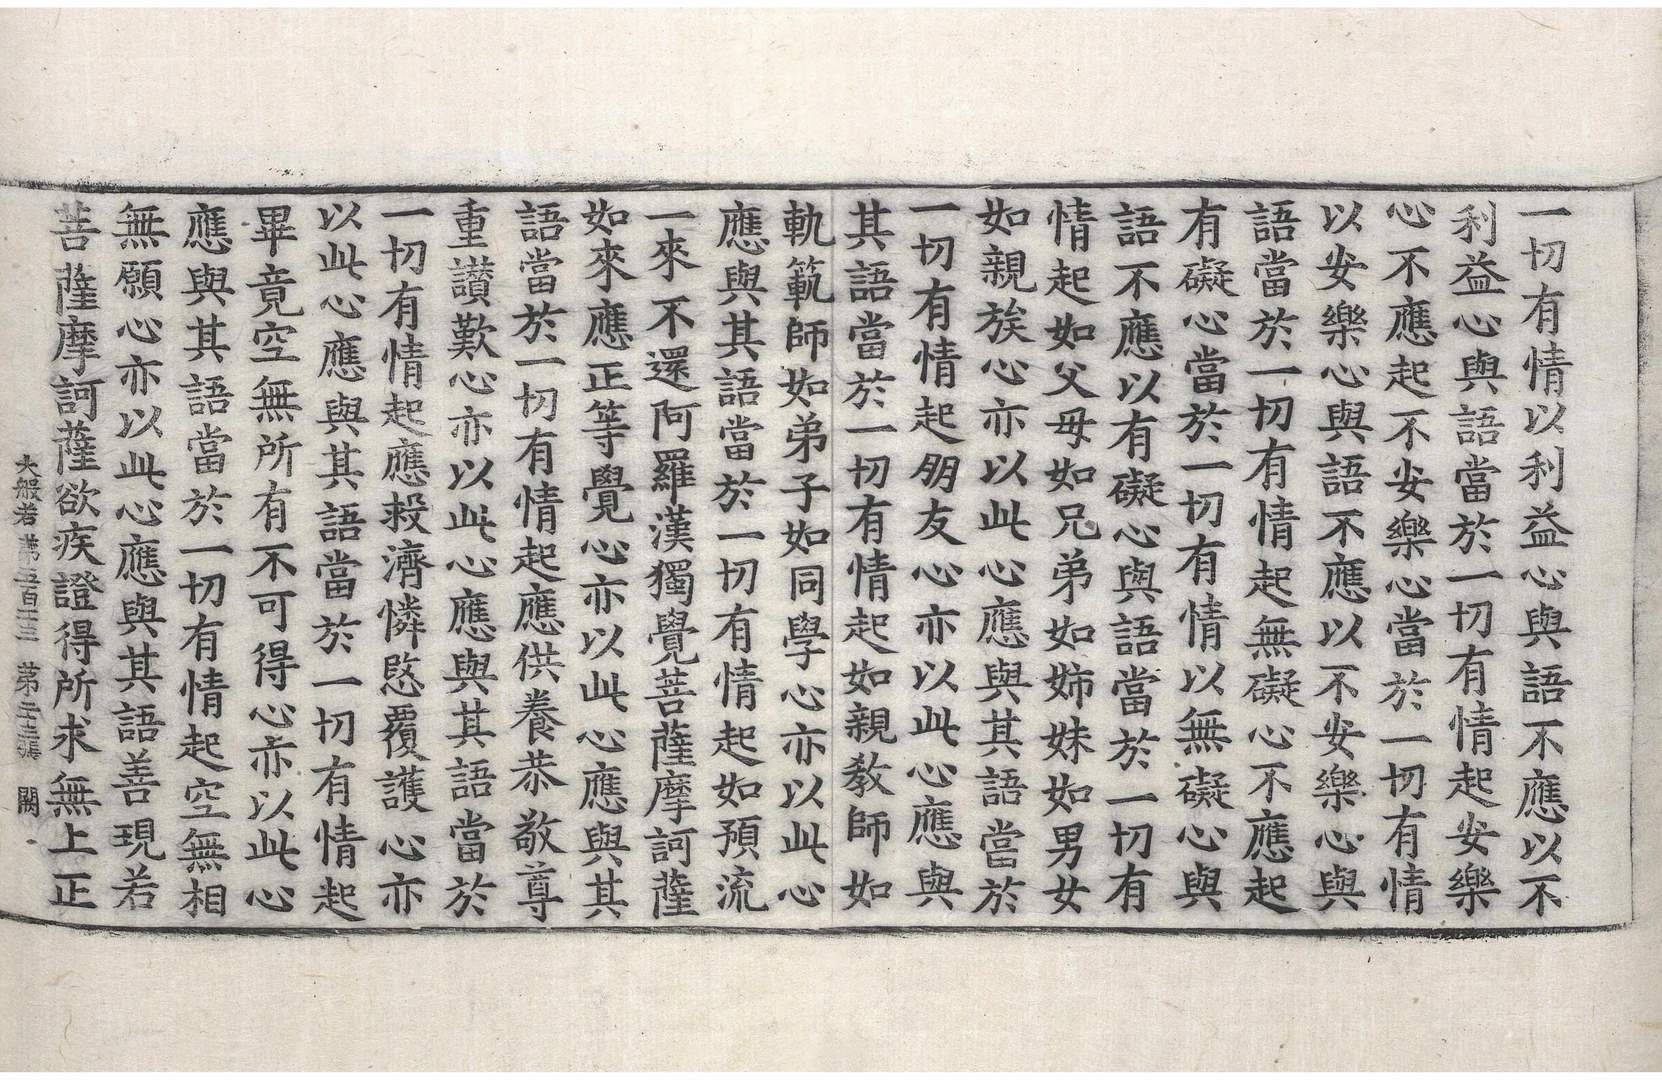 一切有情以利益心與語不應以不
利益心與語當於一切有情起安樂
心不應起不安樂心當於一切有情
以安樂心與語不應以不安樂心與
語當於一切有情起無礙心不應起
有礙心當於一切有情以無礙心與
語不應以有礙心與語當於一切有
情起如父母如兄弟如姊妹如男女
如親族心亦以此心應與其語當於
一切有情起朋友心亦以此心應與
其語當於一切有情起如親教師如
軌範師如弟子如同學心亦以此心
應與其語當於一切有情起如預流
一來不還阿羅漢獨覺菩薩摩訶薩
如來應正等覺心亦以此心應與其
語當於一切有情起應供養恭敬尊
重讃歎心亦以此心應與其語當於
一切有情起應救濟憐愍覆護心亦
以此心應與其語當於一切有情起
畢竟空無所有不可得心亦以此心
應與其語當於一切有情起空無相
無願心亦以此心應與其語善現若
菩薩摩訶薩欲疾證得所求無上正
大般若第五百十三 第二十三張 闕